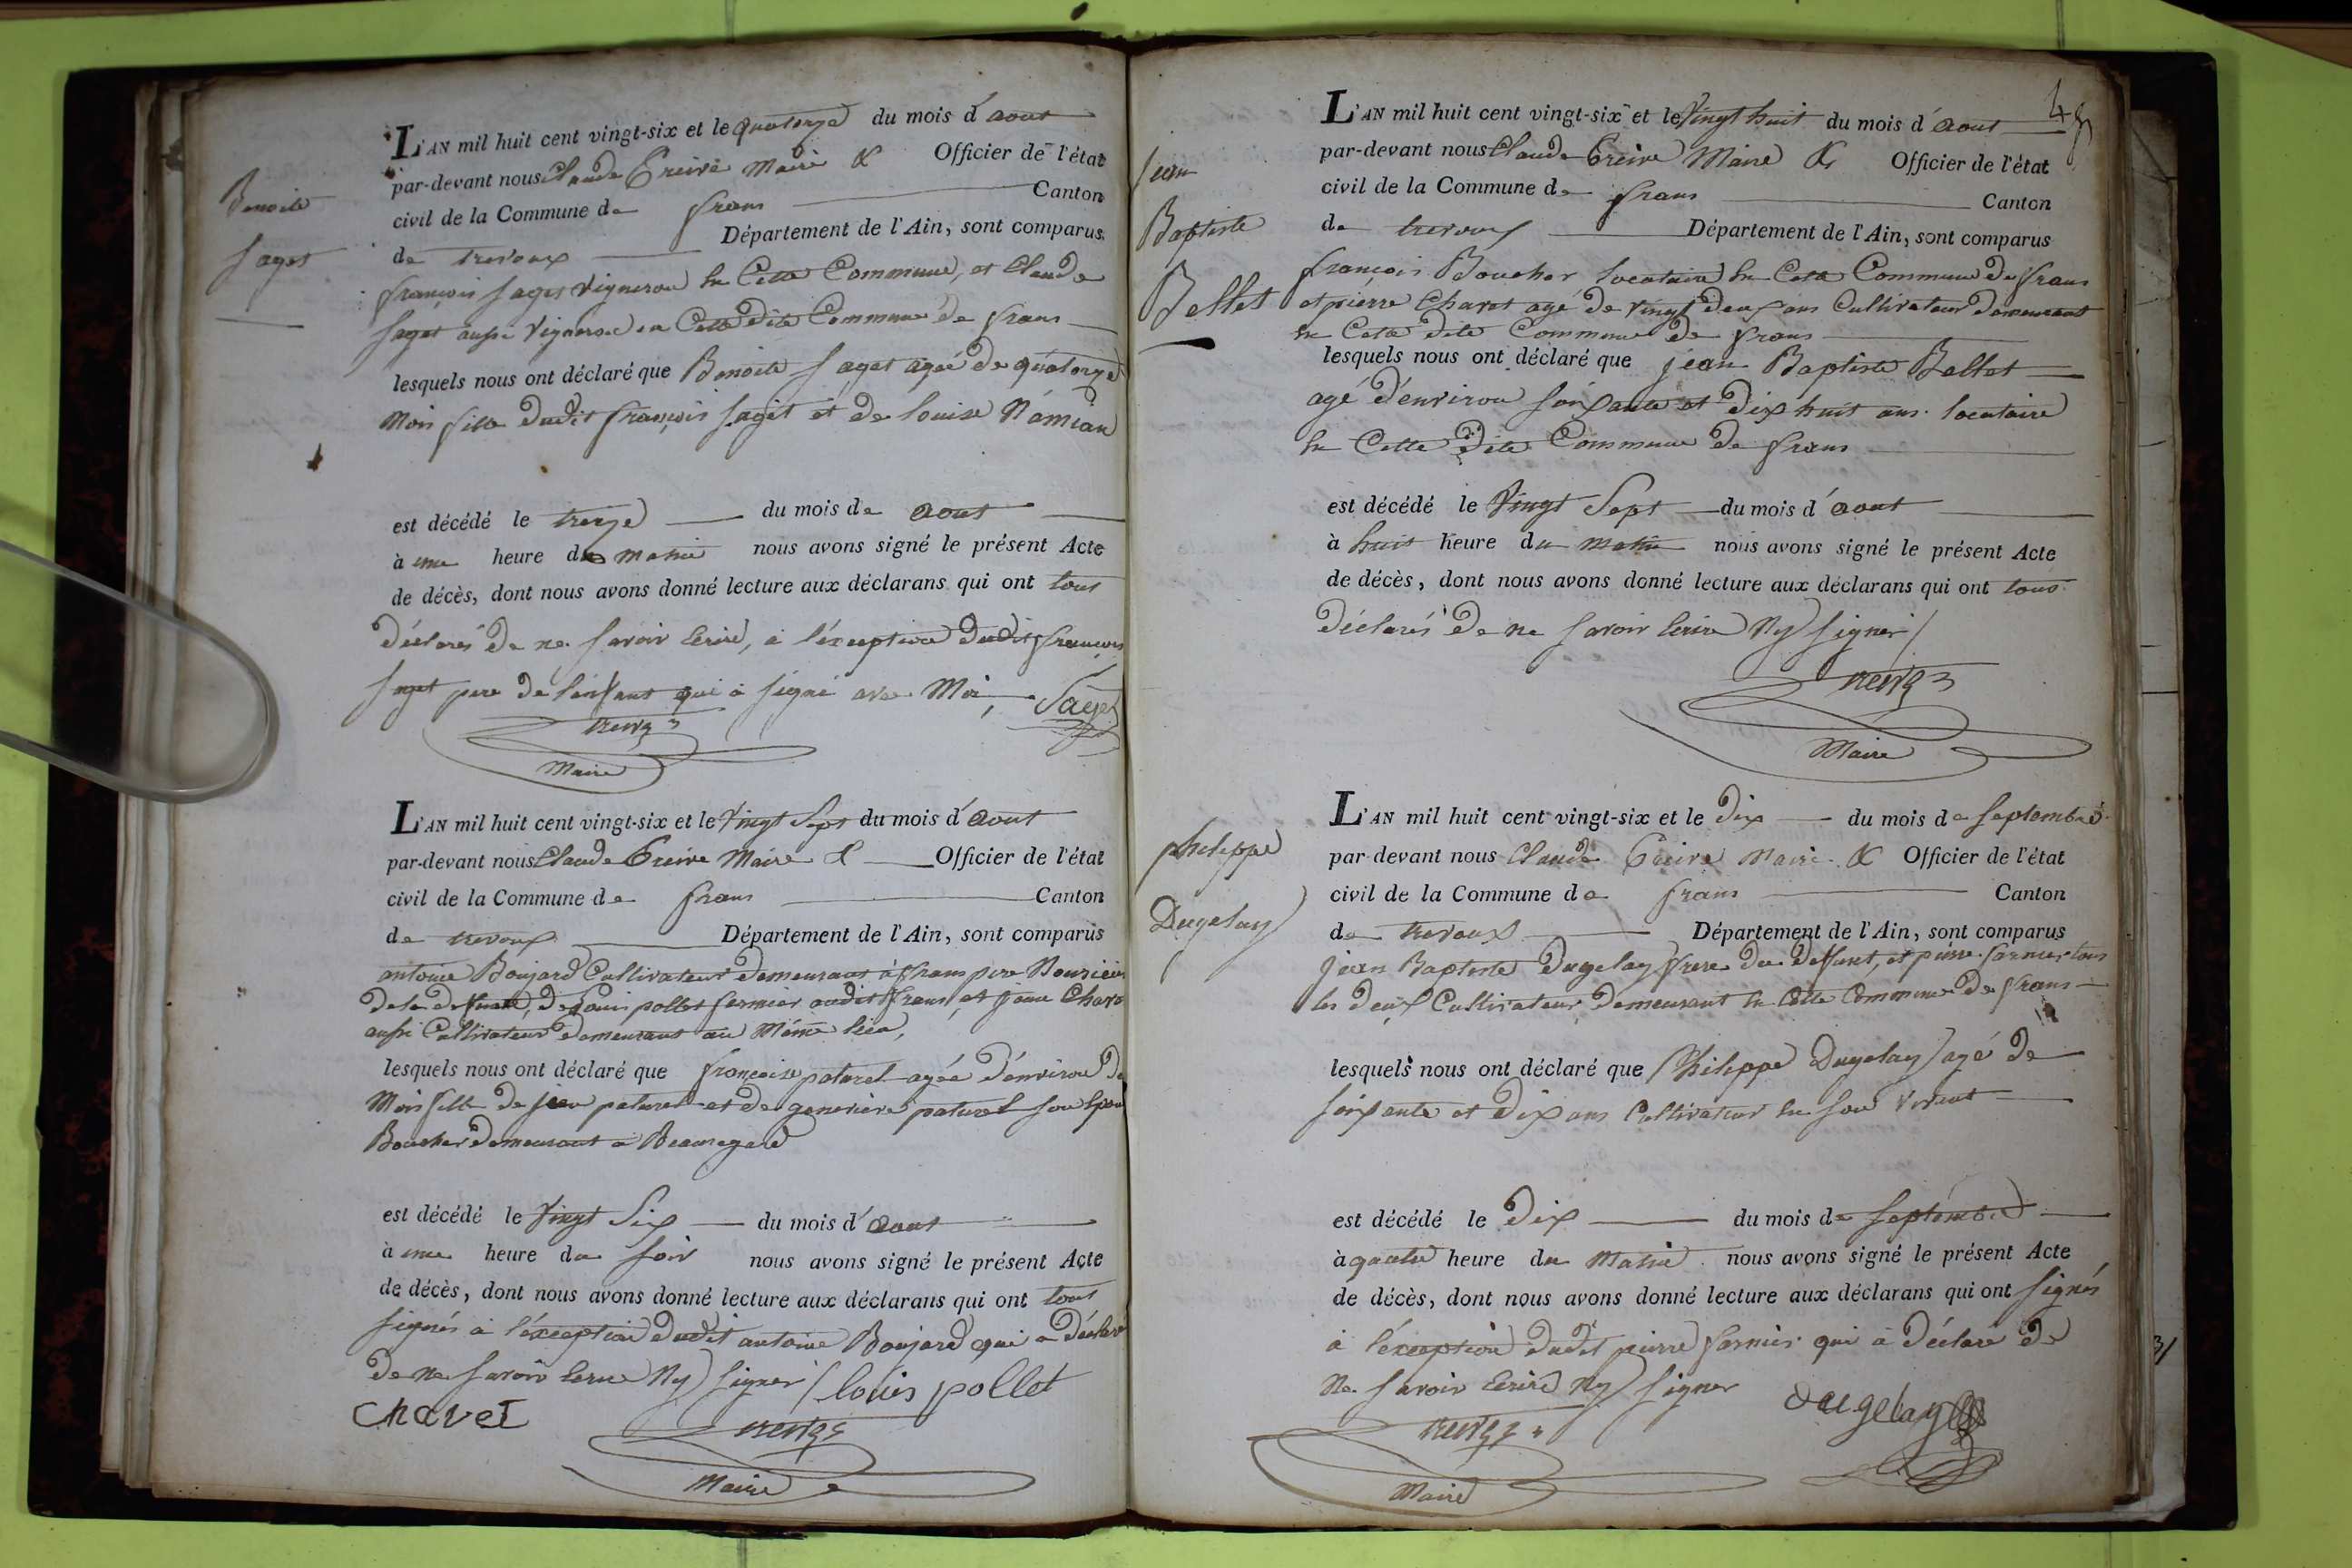 Benoite
Saget
L'AN mil huit cent vingt-six et le quatorze du mois d'aout
par-devant nous Claude Maire & Officier de l'état
civil de la Commune de frans Canton
de trevoux Département de l'Ain, sont comparus
françois Saget vigneron en Cette Commune, et Claude
Saget aussi vigneron en Cette dite Commune de frans
lesquels nous ont déclaré que Benoite Saget agée de quatorze
Mois fille dudit françois Saget et de louise
est décédé le treize du mois de aout
à une heure du matin nous avons signé le présent Acte
de décès, dont nous avons donné lecture aux déclarans qui ont tout
déclarés de ne Savoir Ecrire, à l'éxception dudit françois
Saget pere de l'enfant qui à signé avec Moi, Saget
Maire
L'AN mil huit cent vingt-six et le Vingt Sept du mois d'aout
par-devant nous Claude Maire & Officier de l'état
civil de la Commune de frans Canton
de trevoux Département de l'Ain, sont comparus
antoine Boujard Cultivateur demeurant à frans pere Nouricier
de la deffunte, de Louis pollet fermier audit frans, et
aussi Cultivateur demeurant au Même lieu,
lesquels nous ont déclaré que françoise paturel agée d'environ
Mois fille de paturel et de genevieve paturel son
Boucher demeurant a Beauregard
est décédé le Vingt Six du mois d'aout
à une heure du soir nous avons signé le présent Acte
de décès, dont nous avons donné lecture aux déclarans qui ont tous
signés à l'éxception dudit antoine Boujard qui a déclaré
de ne Savoir Ecrire Ny Signer / louis pollet
Chavet
Maire
48
Jean
Baptiste
Bellet
L'AN mil huit cent vingt-six et le Vingt huit du mois d'aout
par-devant nous Claude Maire & Officier de l'état
civil de la Commune de frans Canton
de trevoux Département de l'Ain, sont comparus
françois Boucher locataire en Cette Commune de frans
et pierre Chavet agé de vingt deux ans Cultivateur demeurant
en Cette dite Commune de frans
lesquels nous ont déclaré que jean Baptiste Bellet
agé d'environ soixante et dix huit ans locataire
en Cette dite Commune de frans
est décédé le Vingt Sept du mois d'aout
à huit heure du matin nous avons signé le présent Acte
de décès, dont nous avons donné lecture aux déclarans qui ont tous
déclarés de ne Savoir Ecrire Ny Signer /
Maire
philippe
Dugelay
L'AN mil huit cent vingt-six et le dix du mois de Septembre
par-devant nous Claude Maire & Officier de l'état
civil de la Commune de frans Canton
de trevoux Département de l'Ain, sont comparus
jean Baptiste Dugelay frere du deffunt, et pierre tous
les deux Cultivateur demeurant en Cette Commune de frans
lesquels nous ont déclaré que Philippe Dugelay agé de
soixante et dix ans Cultivateur en son vivant
est décédé le Dix du mois de Septembre
à quatre heure du Matin nous avons signé le présent Acte
de décès, dont nous avons donné lecture aux déclarans qui ont Signés
à l'éxception dudit pierre qui à déclaré de
Ne Savoir Ecrire Ny Signer dugelay
Maire